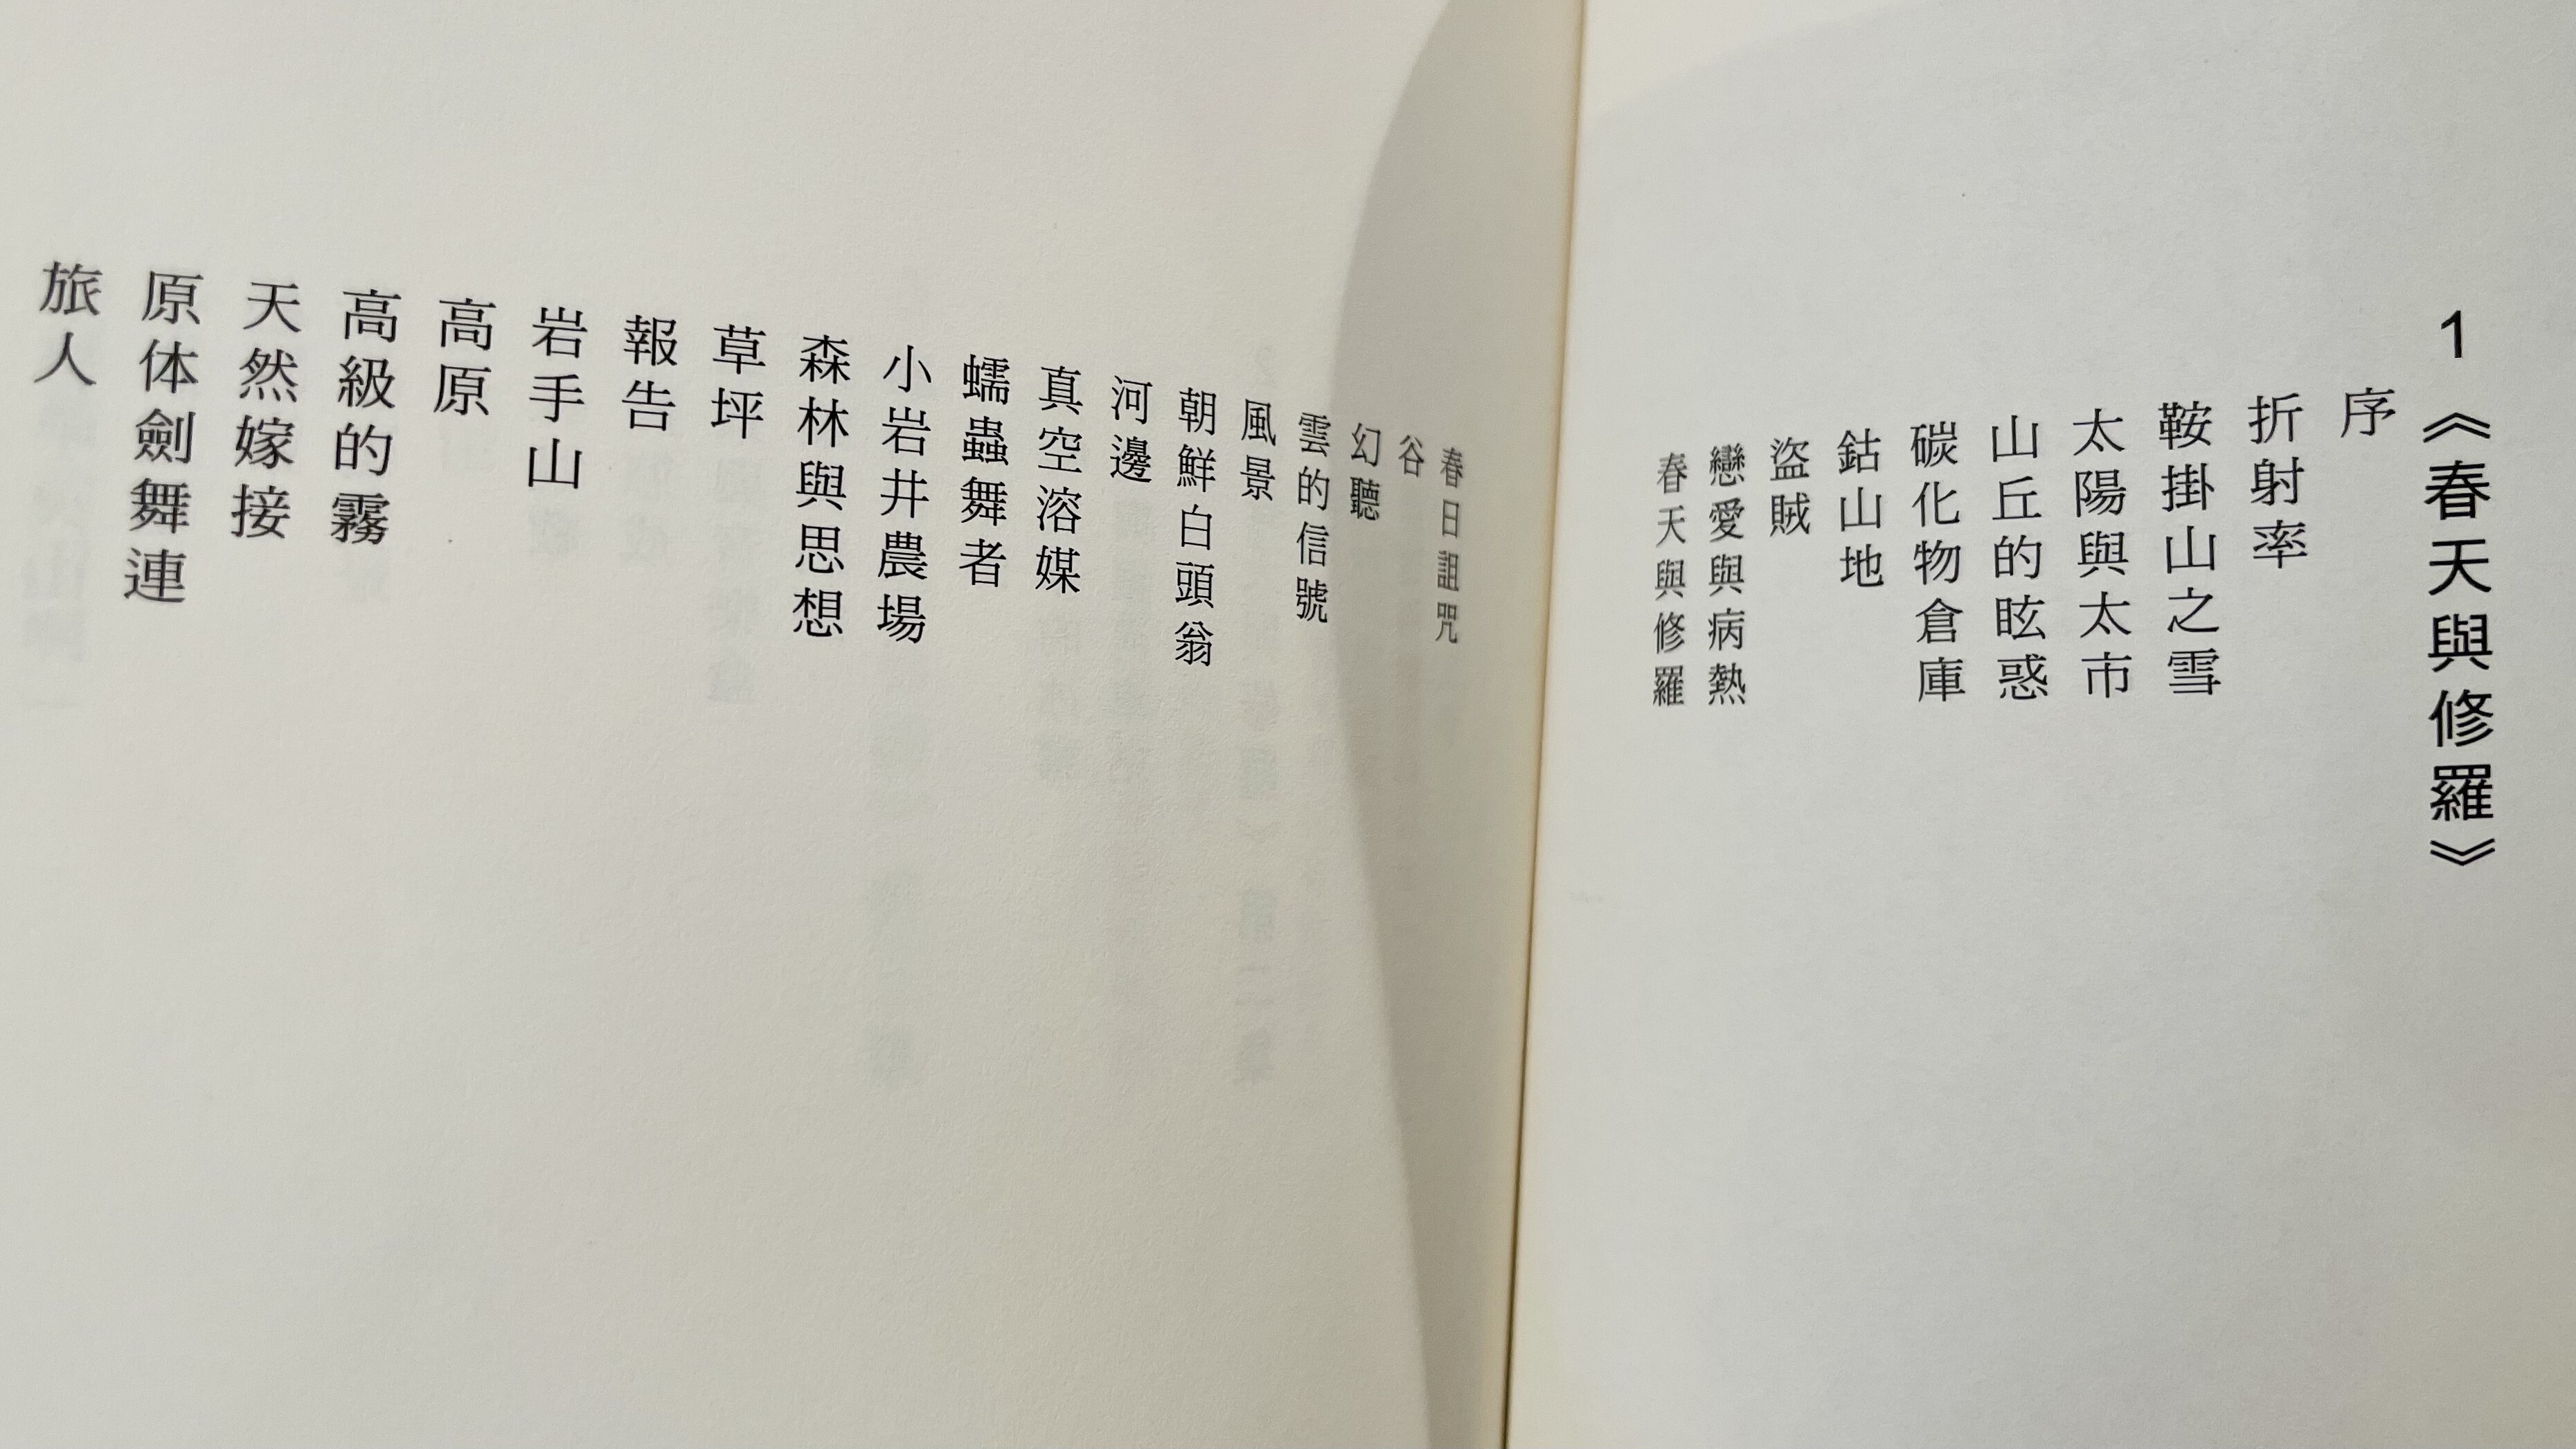 1《春天與修羅》
序
折射率
鞍掛山之雪
太陽與太市
山丘的眩惑
碳化物倉庫
鈷山地
盜賊
戀愛與病熱
春天與修羅
春日詛咒
谷
幻聽
雲的信號
風景
朝鮮白頭翁
河邊
真空溶媒
蠕蟲舞者
小岩井農場
森林與思想
草坪
報告
岩手山
高原
高級的霧
天然嫁接
原体劍舞連
旅人